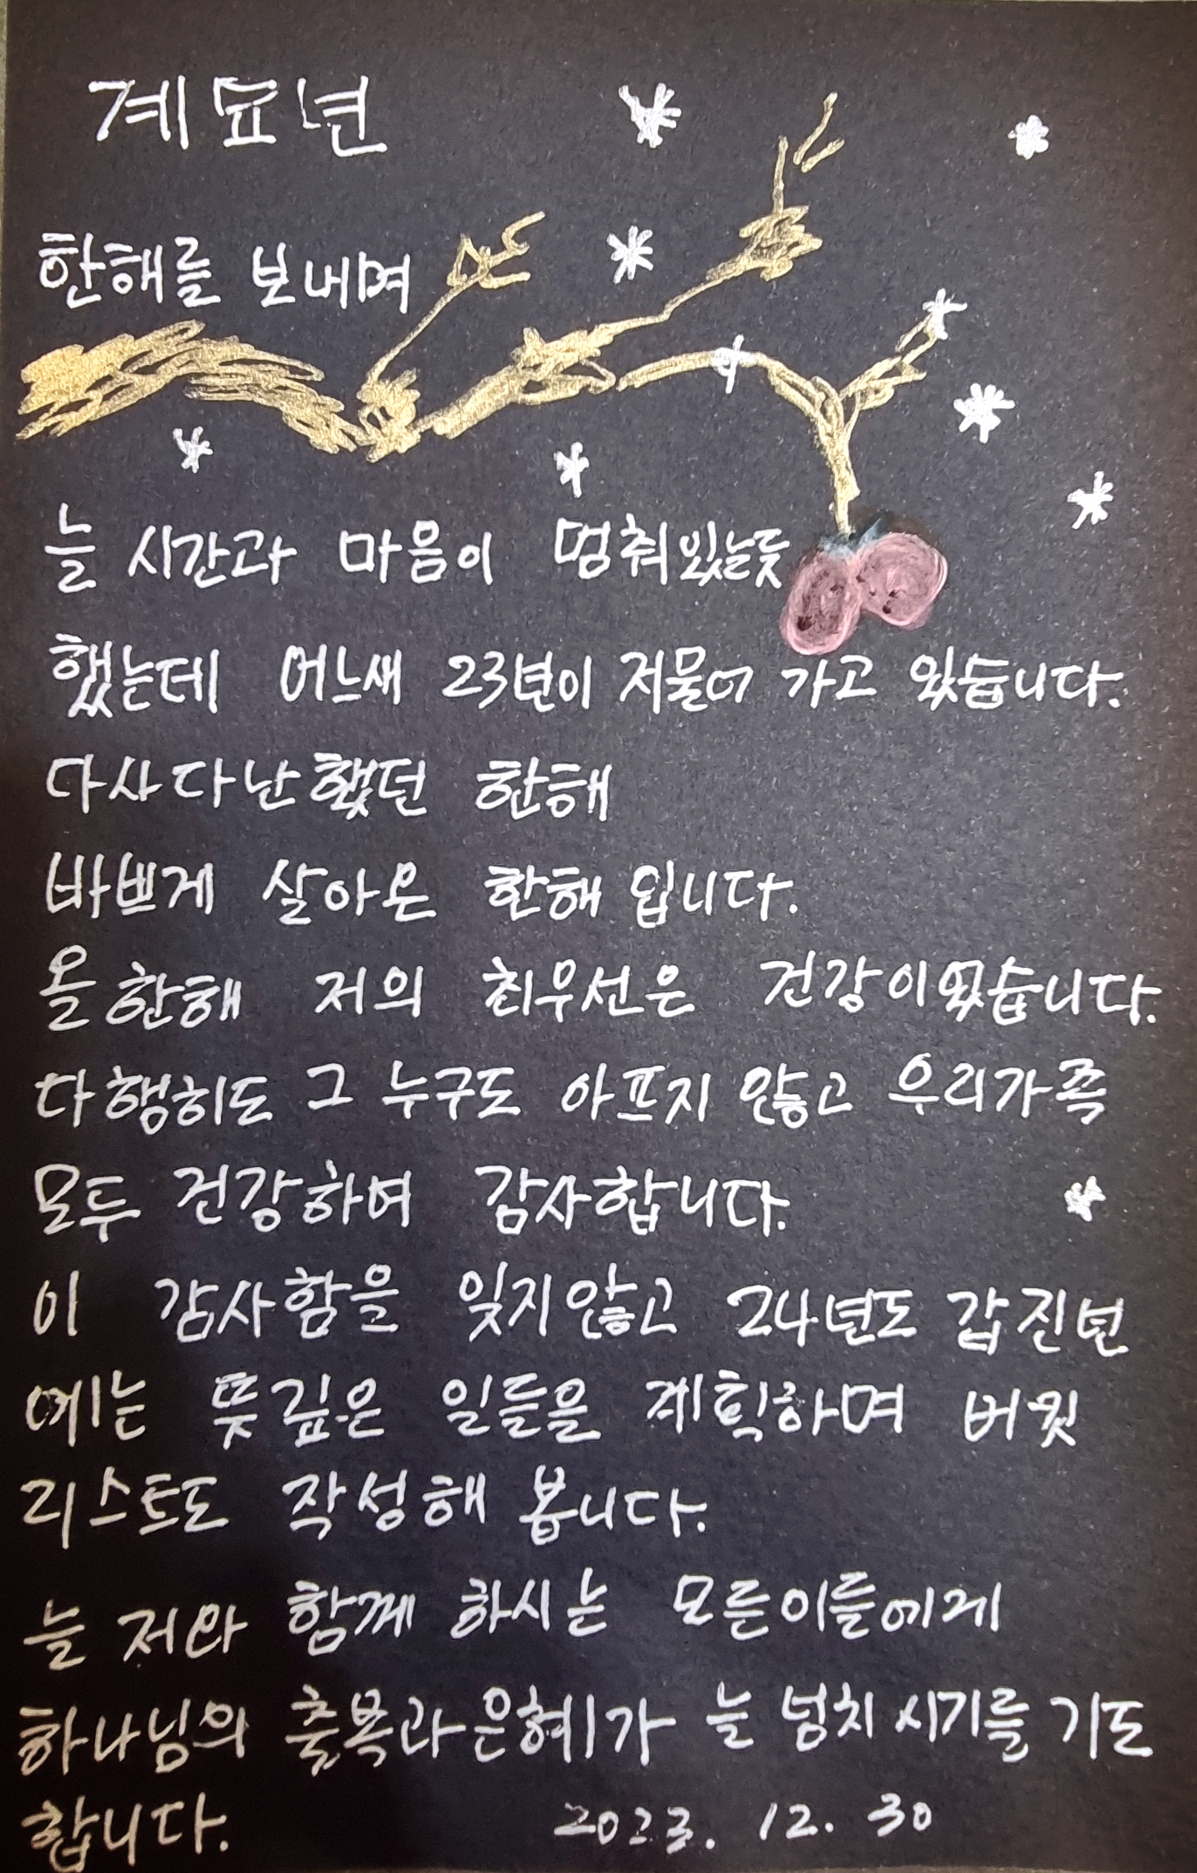 계묘년
한해를 보내며
늘 시간과 마음이 멈춰있는듯
했는데 어느새 23년이 저물어 가고 있습니다.
다사다난했던 한해
바쁘게 살아온 한해 입니다.
올한해 저의 최우선은 건강이었습니다.
다행히도 그 누구도 아프지 않고 우리가족
모두 건강하며 감사합니다.
이 감사함을 잊지않고 24년도 갑진년
에는 뜻깊은 일들을 계획하며 버킷
리스트도 작성해 봅니다.
늘 저와 함께 하시는 모든이들에게
하나님의 축복과은혜가 늘 넘치시기를 기도
합니다. 2023. 12. 30